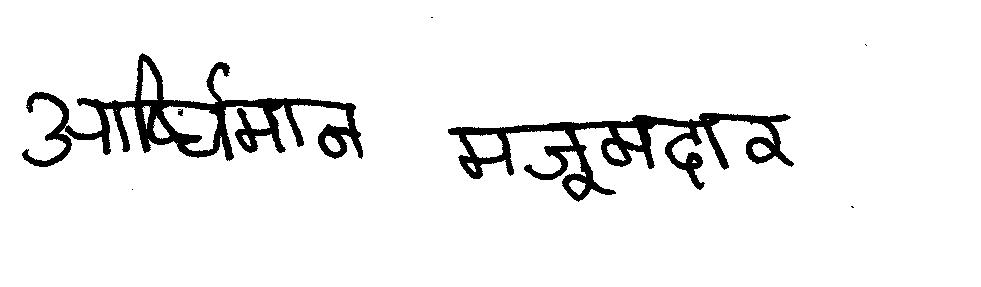 आर्धिमान मजूमदार